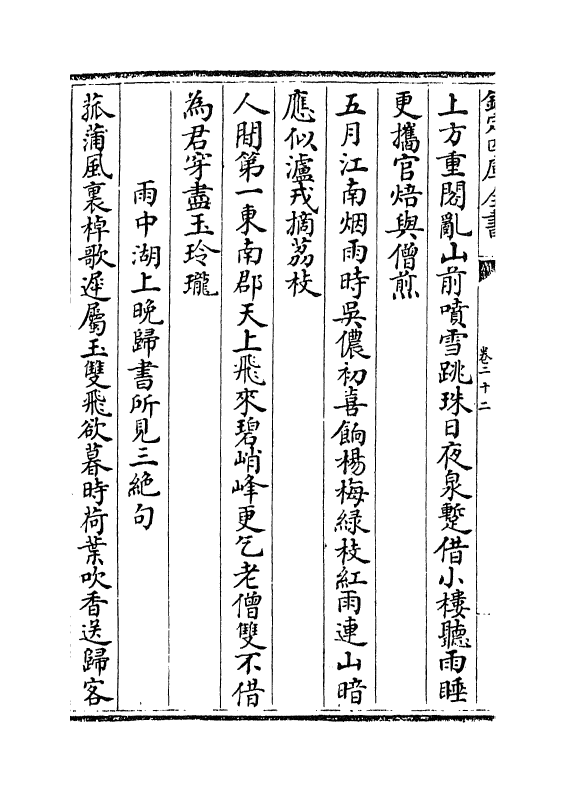 欽定四庫全書
卷二十二
上方重閣亂山前噴雪跳珠日夜泉蹔借小樓聽雨睡
更攜官焙與僧煎
五月江南烟雨時吳儂初喜餉楊梅綠枝紅雨連山暗
應似瀘戎摘荔枝
人間第一東南郡天上飛來碧峭峰更乞老僧雙不借
為君穿盡玉玲瓏
雨中湖上晚歸書所見三絶句
菰蒲風裏棹歌遲屬玉雙飛欲暮時荷葉吹香送歸客